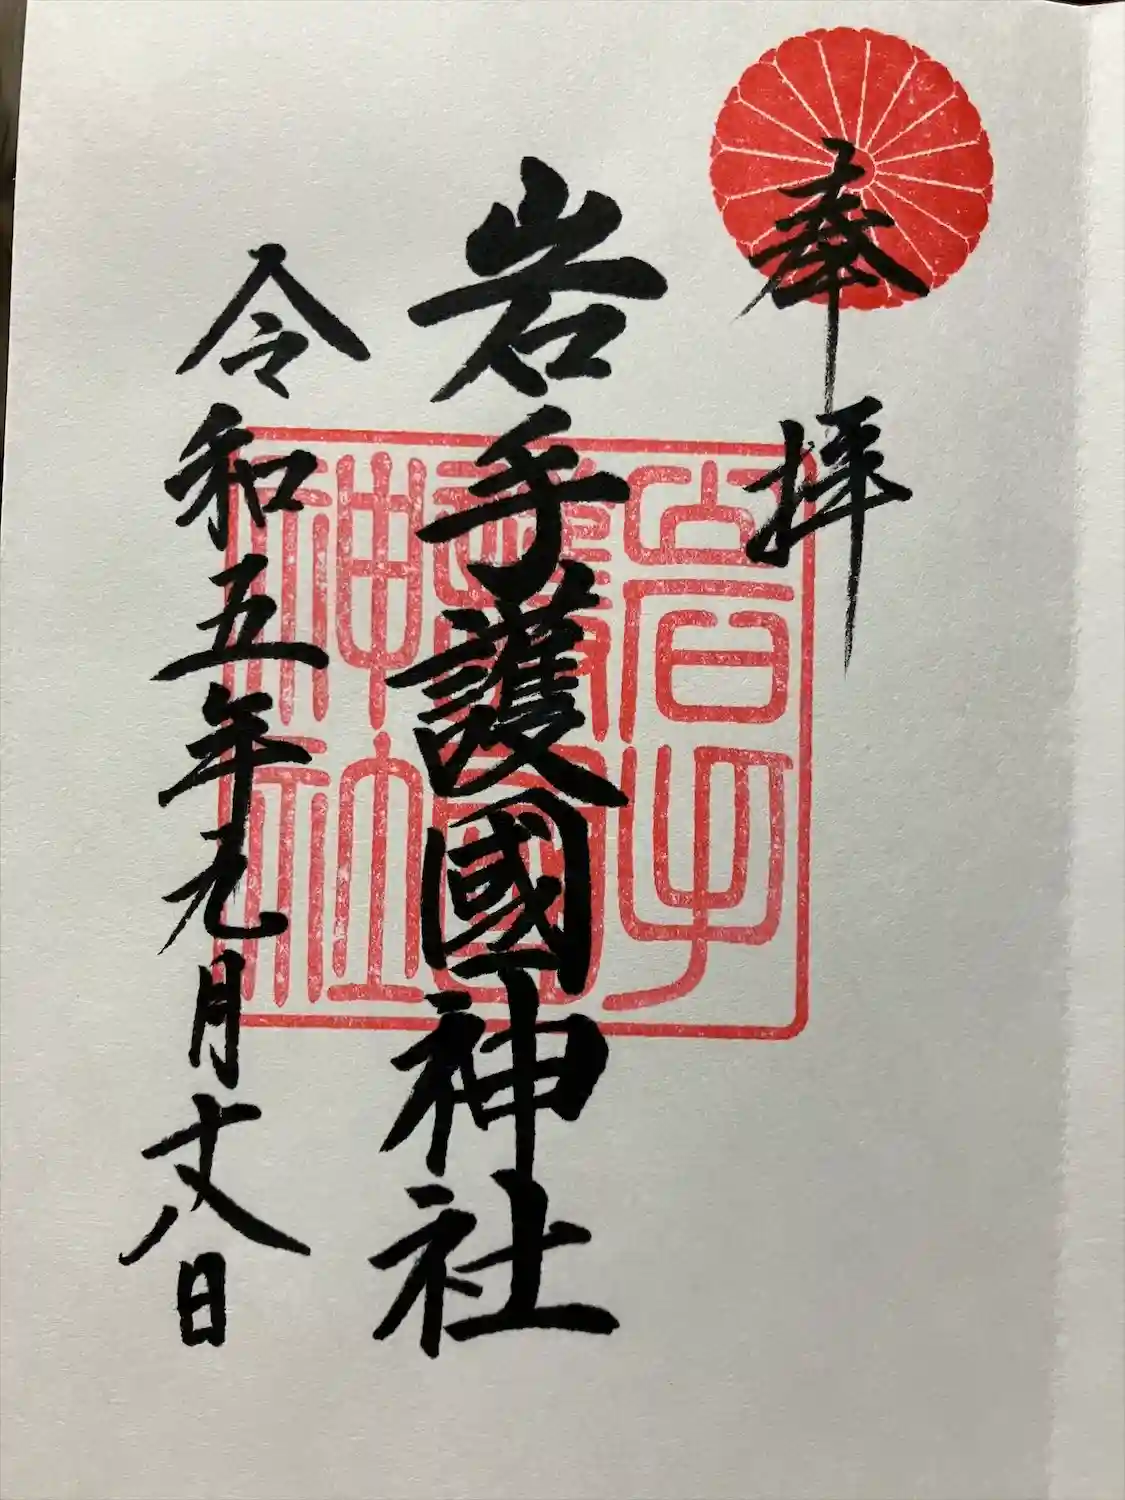 奉拝
岩手護國神社
岩手
護國
神社
令和五年元月十八日